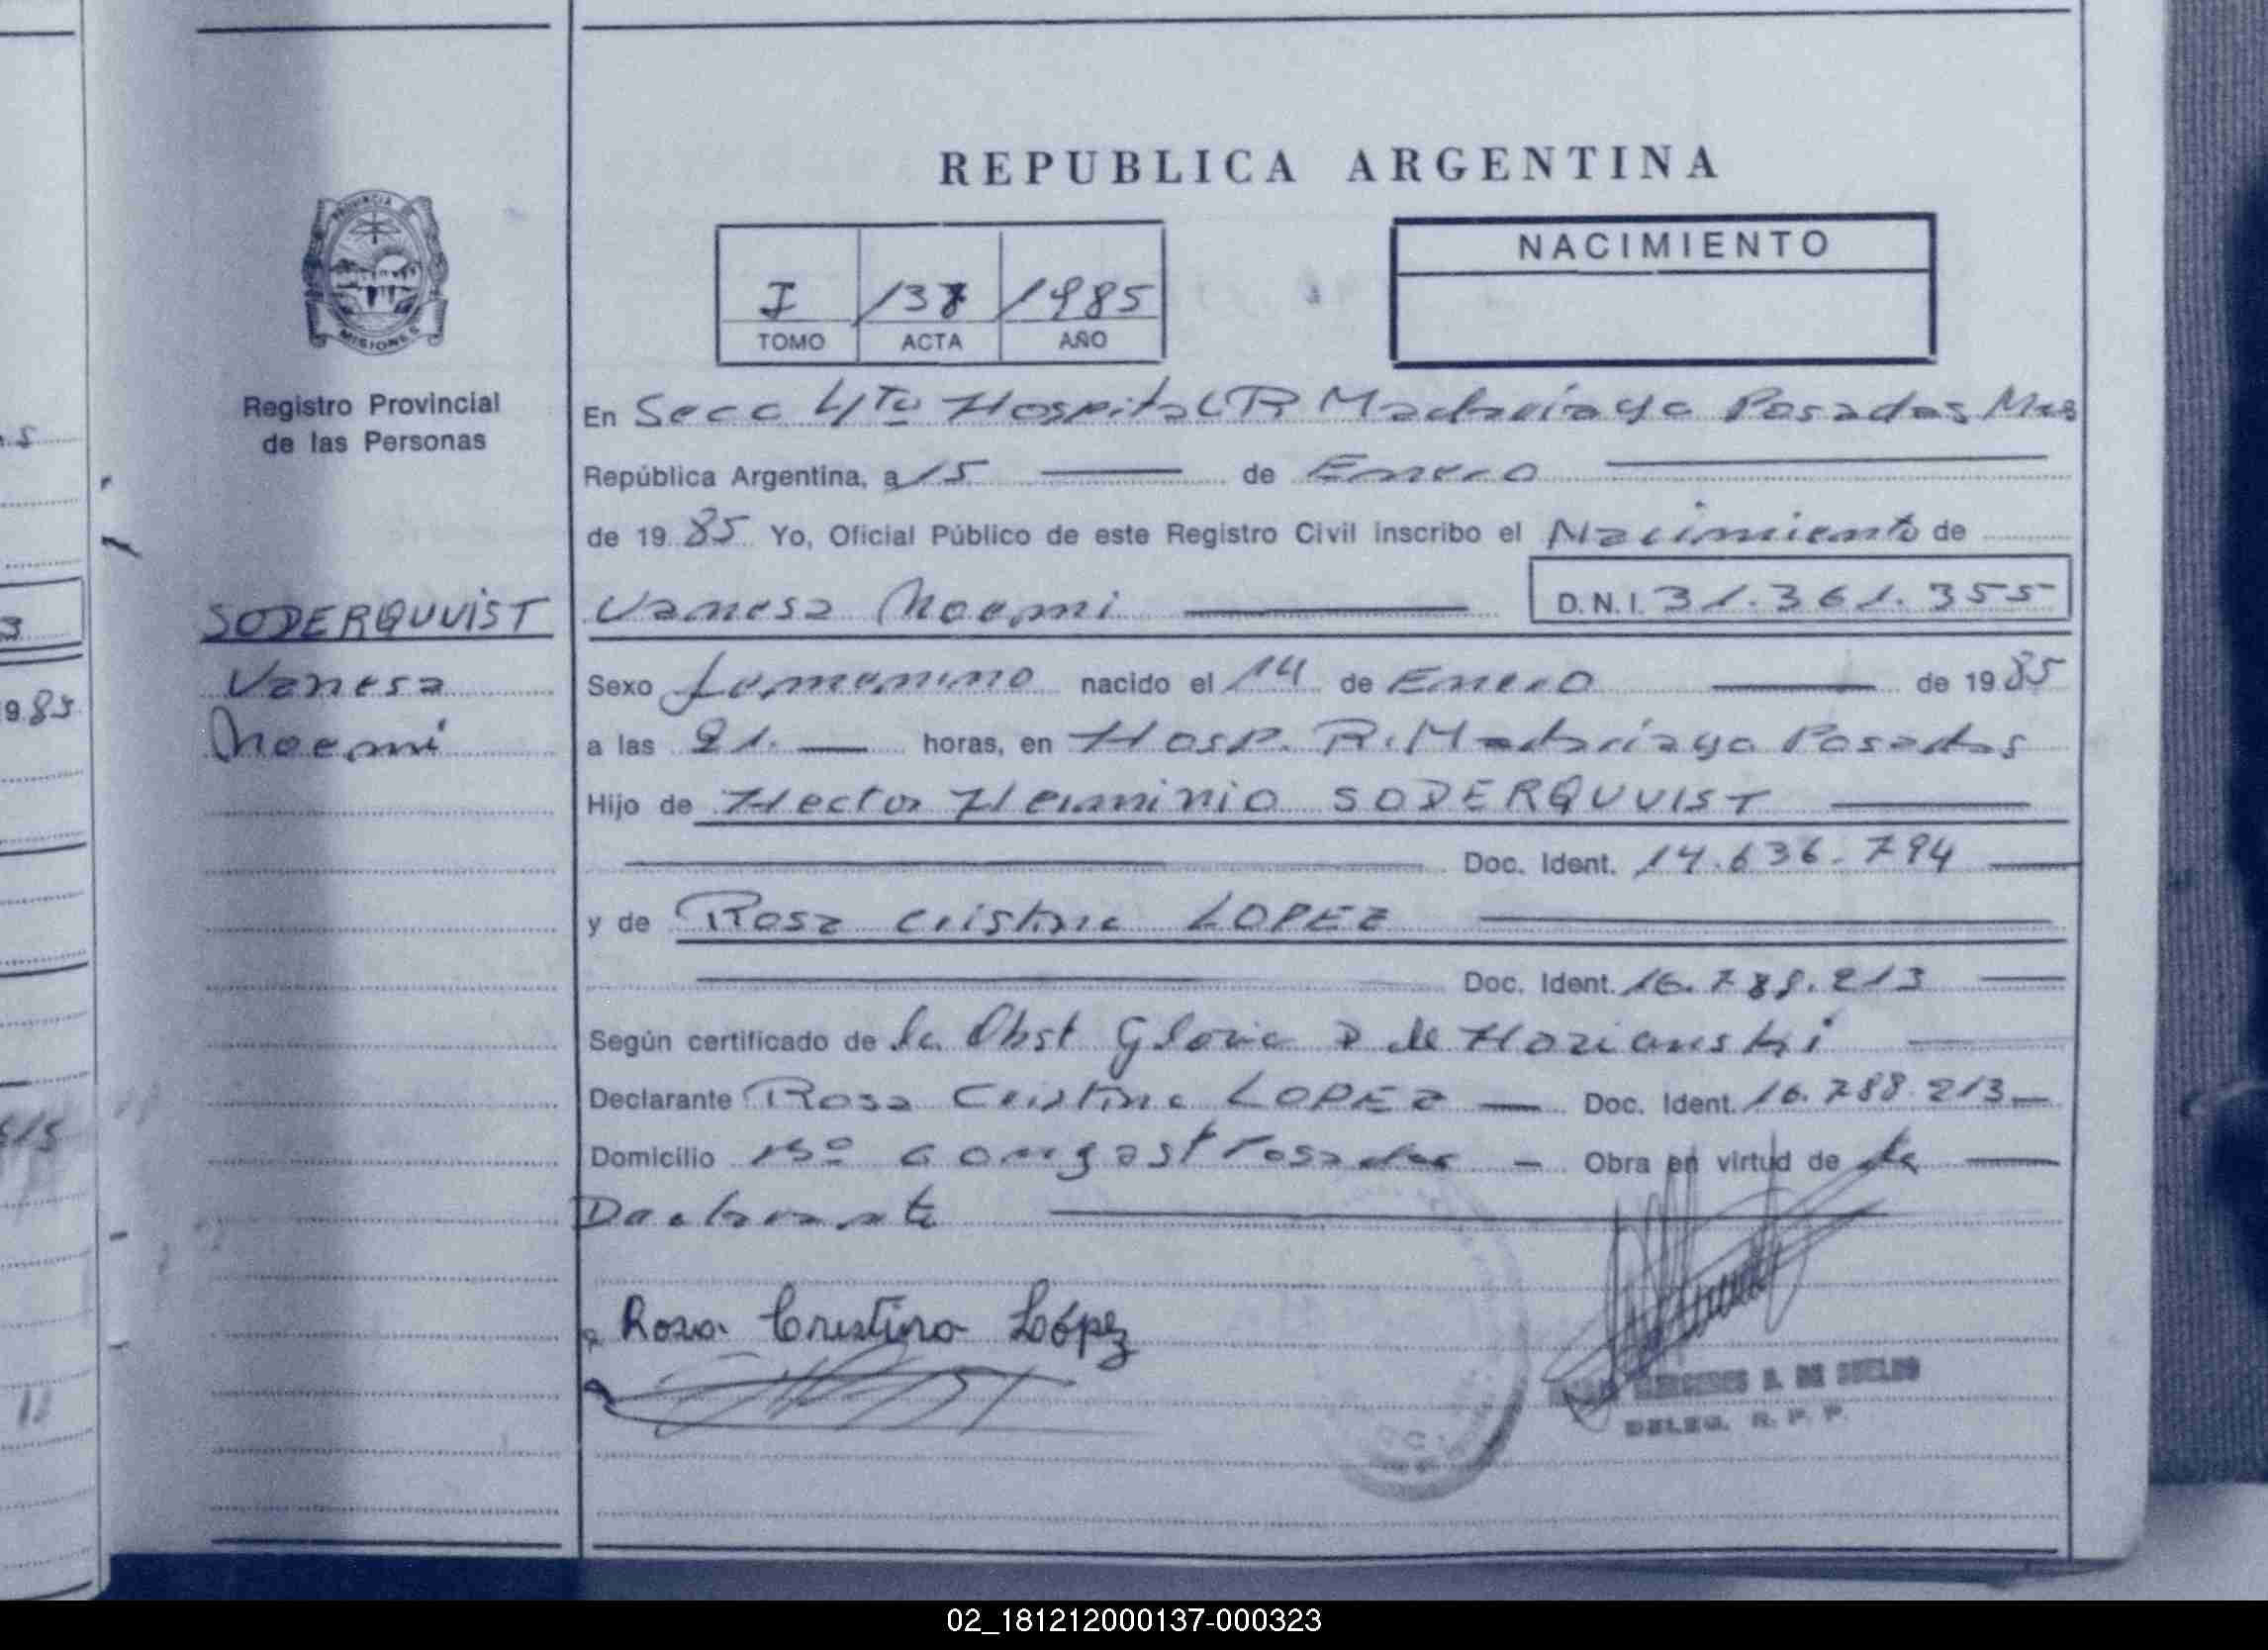 REPUBLICA ARGENTINA
PROVINCIA DE
MISIONES
Registro Provincial
de las Personas
I 138 1985
TOMO ACTA AÑO
NACIMIENTO
En Secc 4ta Hospital R Madariaga Posadas Mns
República Argentina, a 15 de Enero
de 19 85 Yo, Oficial Público de este Registro Civil inscribo el Nacimiento de
SODERQUVIST
Vanesa
Noemi
Vanesa Noemi D.N.I. 31.361.355
Sexo femenino nacido el 14 de Enero de 19 85
a las 21. horas, en Hosp. R. Madariaga Posadas
Hijo de Hector Herminio SODERQUVIST
Doc. Ident. 14.636.794
y de Rosa Cristina LOPEZ
Doc. Ident. 16.788.213
Según certificado de la Obst Gloria D de Horianski
Declarante Rosa Cristina LOPEZ Doc. Ident. 16.788.213
Domicilio Posadas Obra en virtud de la
Declarante
Rosa Cristina López
DELEG. R. P. P.
02_181212000137-000323